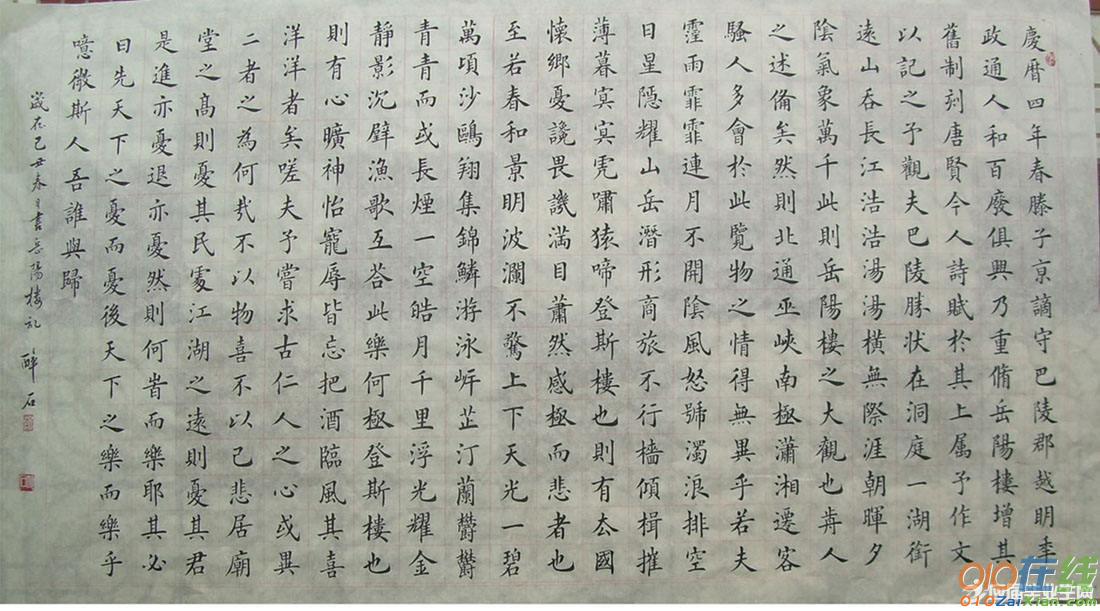 慶曆四年春滕子亰謫守巴陵郡越明秊
政通人和百廢俱興乃重脩岳陽樓增其
舊制刻唐賢今人詩賦於其上属予作文
以記之予觀夫巴陵勝状在洞庭一湖銜
遠山吞長江浩浩湯湯橫無際涯朝暉夕
陰氣象萬千此則岳陽樓之大觀也歬人
之述備矣然則北通巫峽南極瀟湘遷客
騷人多會於此覽物之情得無異乎若夫
霪雨霏霏連月不開陰風怒號濁浪排空
日星隱耀山岳潛形商旅不行檣傾楫摧
薄暮冥冥虎嘯猿啼登斯樓也則有去國
懷鄉憂讒畏譏滿目蕭然感極而悲者也
至若春和景明波瀾不驚上下天光一碧
萬頃沙鷗翔集錦鱗游泳岸芷汀蘭鬱鬱
青青而或長煙一空皓月千里浮光耀金
靜影沉璧漁歌互荅此樂何極登斯樓也
則有心曠神怡寵辱皆忘把酒臨風其喜
洋洋者矣嗟夫予嘗求古仁人之心或異
二者之為何哉不以物喜不以己悲居廟
堂之高則憂其民處江湖之遠則憂其君
是進亦憂退亦憂然則何旹而樂耶其必
曰先天下之憂而憂後天下之樂而樂乎
噫微斯人吾誰與歸
歲在己丑春月書岳陽樓記 醉石
010在线
010ZaiXian.com